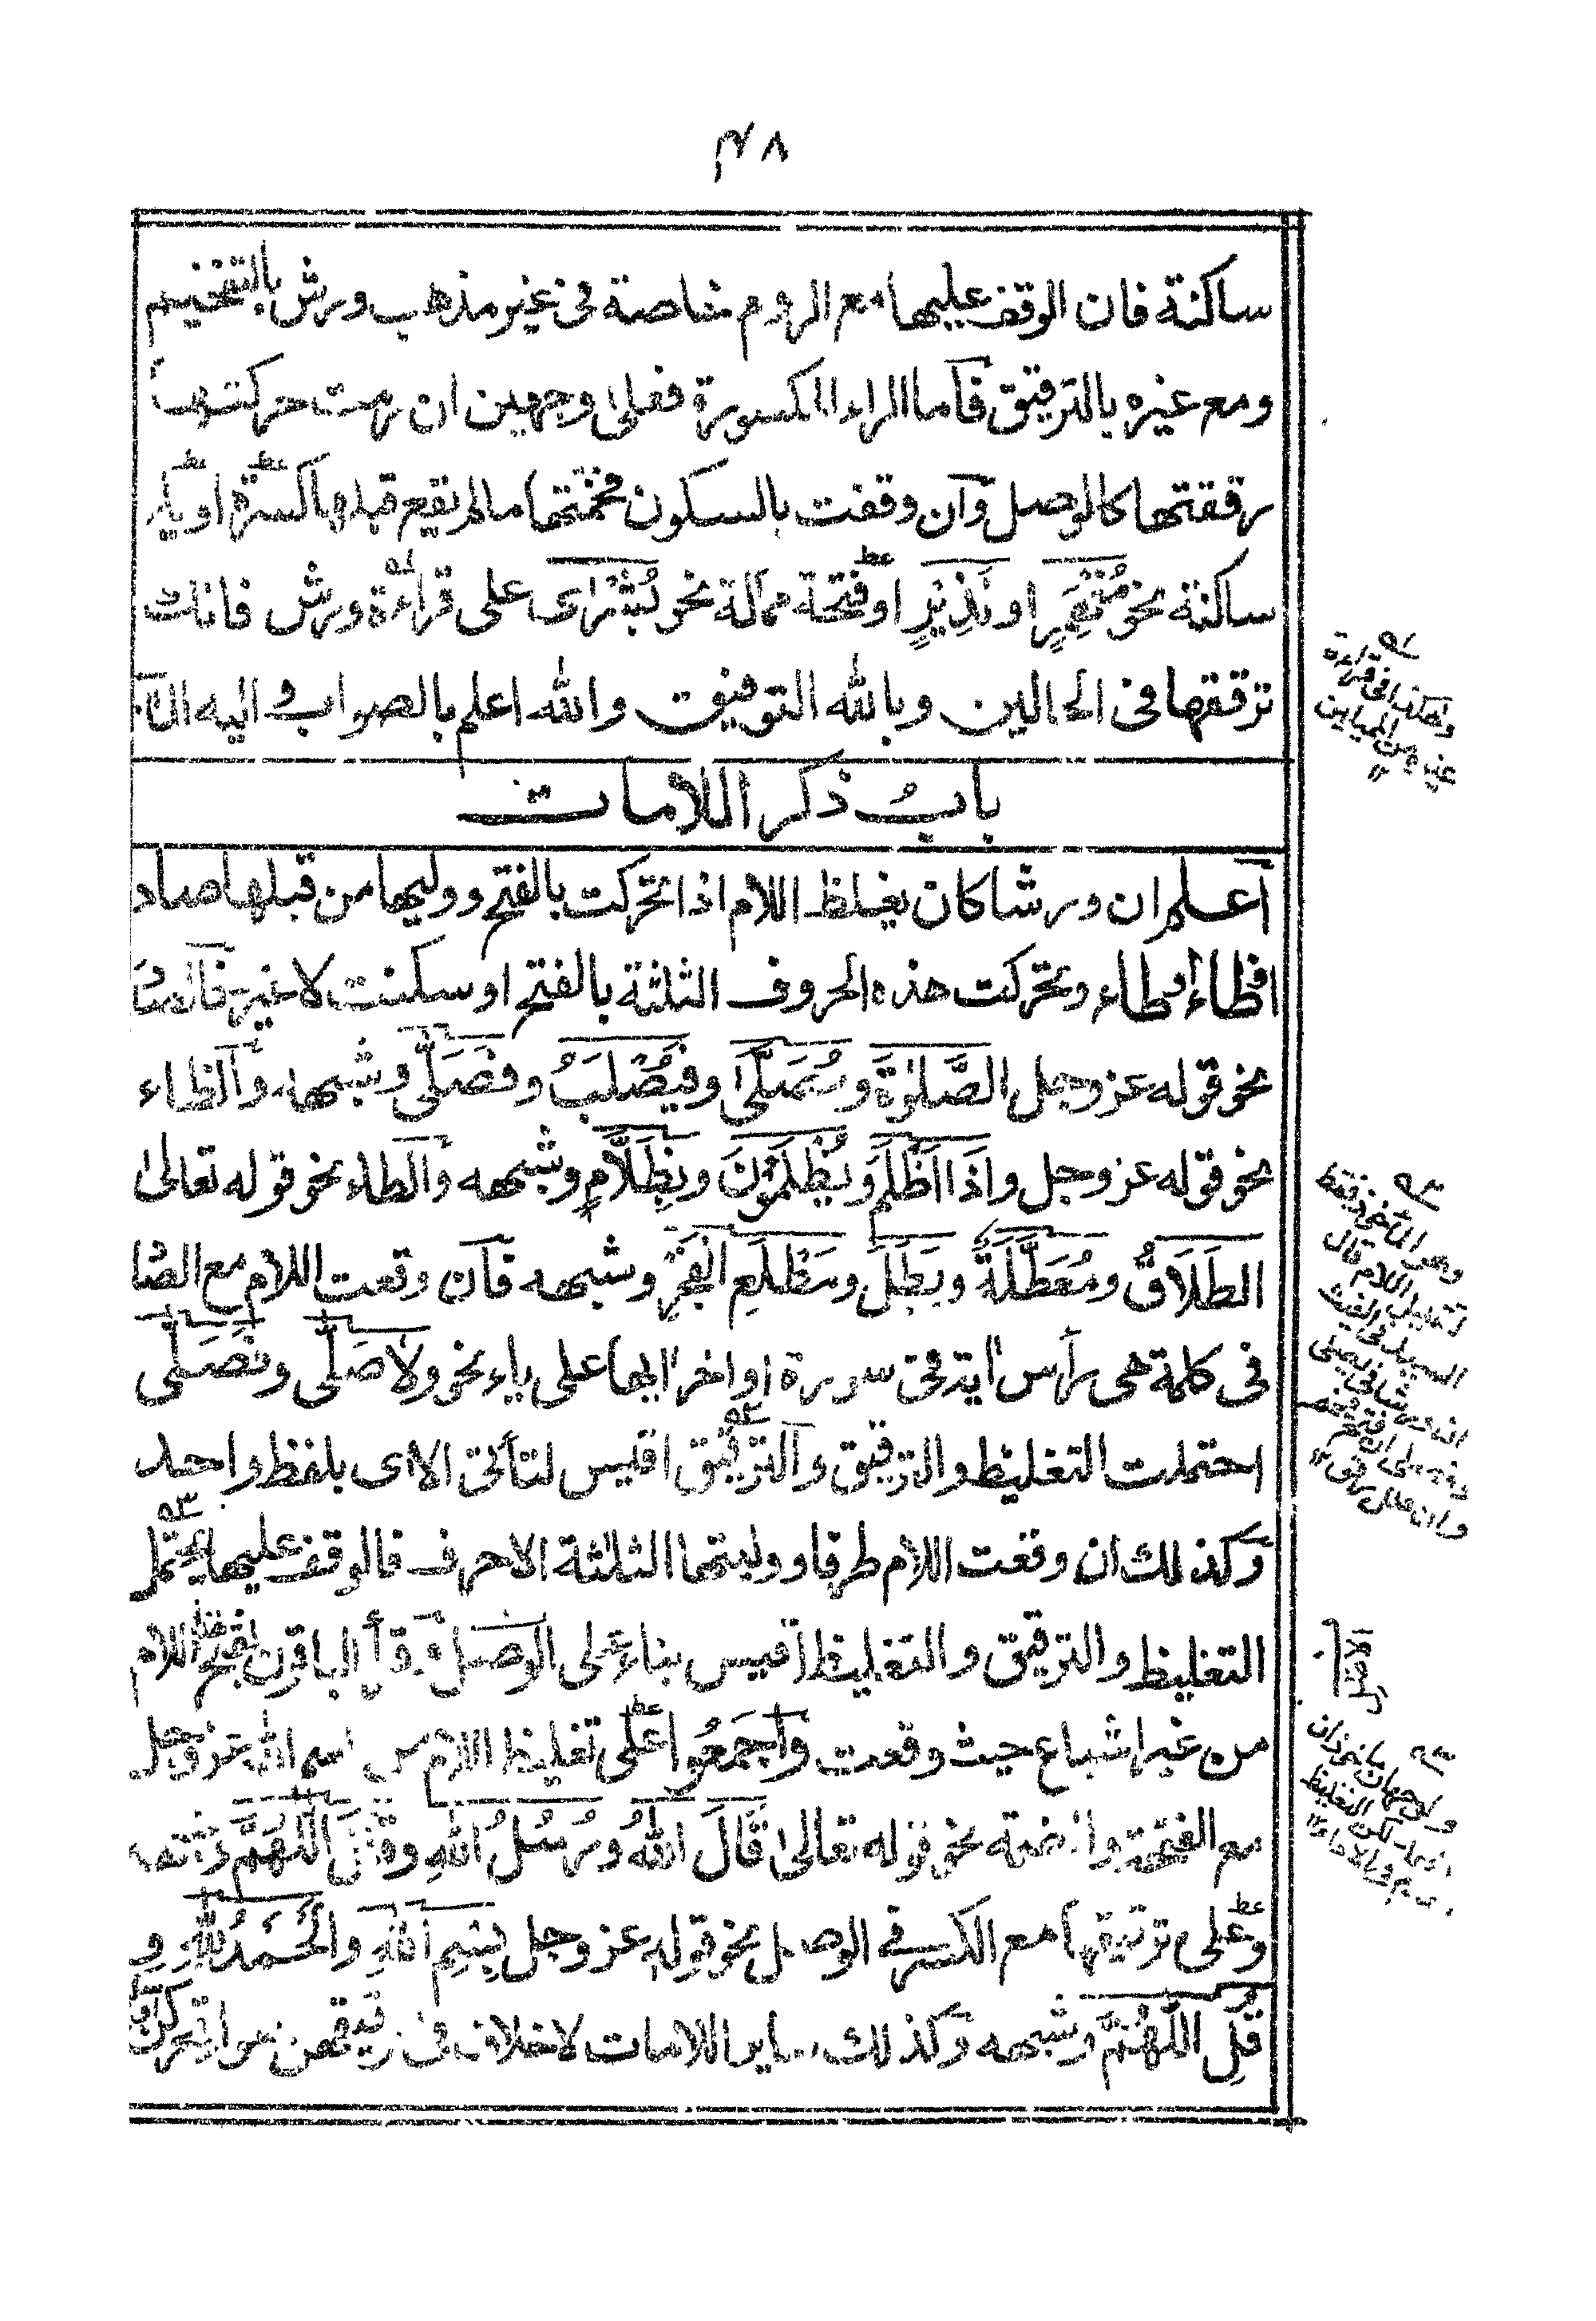 ٤٨
ساكنة فان الوقف عليها مع الروم خاصة فى غير مذهب ورش بالتفخيم
ومع غيره بالترقيق فاما الراء المكسورة فعلى وجهين ان رمت حركتها
رققتها كالوصل وان وقفت بالسكون فخمتها مالم يقع قبلها كسرة او ياء
ساكنة نحو مُنْهَمِرٍ او نَذِيْرٍ او فتحة ممالة نحو بُشْرَاى على قراءة ورش فانك
ترققها فى الحالين وبالله التوفيق والله اعلم بالصواب و اليه
بابُ ذكر اللامات
اعلم ان ورشا كان يغلظ اللام اذا تحركت بالفتح ووليها من قبلها صاد
اوظاء اوطاء وتحركت هذه الحروف الثلثة بالفتح او سكنت لاغير فالصاد
نحو قوله عز وجل الصَّلوٰةَ و مُصَلًّى و فَيُصْلَبُ و فَصَلّٰى وشبهه والظاء
نحو قوله عز وجل واِذَا اَظْلَمَ و يُظْلَمُوْنَ و بِظَلَّامٍ وشبهه والطاء نحو قوله تعالى
الطَلَاقُ و مُعَطَّلَةً و بَطَلَ و مَطْلَعِ الْفَجْرِ وشبهه فان وقعت اللام مع الصاد
فى كلمة هى رأس اية فى سورة اواخر ايها على ياء نحو ولا صَلّٰى و فَصَلّٰى
احتملت التغليظ والترقيق والترقيق اقيس لتأتى الاى بلفظ واحد
وكذلك ان وقعت اللام طرفا ووليتها الثلثة الاحرف فالوقف عليها يحتمل
التغليظ والترقيق والتغليظ اقيس بناء على الوصل وقرأ الباقون بفتح اللام
من غير اشباع حيث وقعت واجمعوا على تغليظ اللام من اسم الله عز وجل
مع الفتحة والضمة نحو قوله تعالى قَالَ اللهُ و رُسُلُ اللهِ و اللّٰهُمَّ وشبهه
وعلى ترقيقها مع الكسرة فى الوصل نحو قوله عز وجل بِسْمِ اللهِ والْحَمْدُ لِلّٰهِ و
قُلِ اللّٰهُمَّ وشبهه وكذلك ساير اللامات لاخلاف فى ترقيقهن سواء تحركن
وهكذا فى قراءة
غيره من المميلين